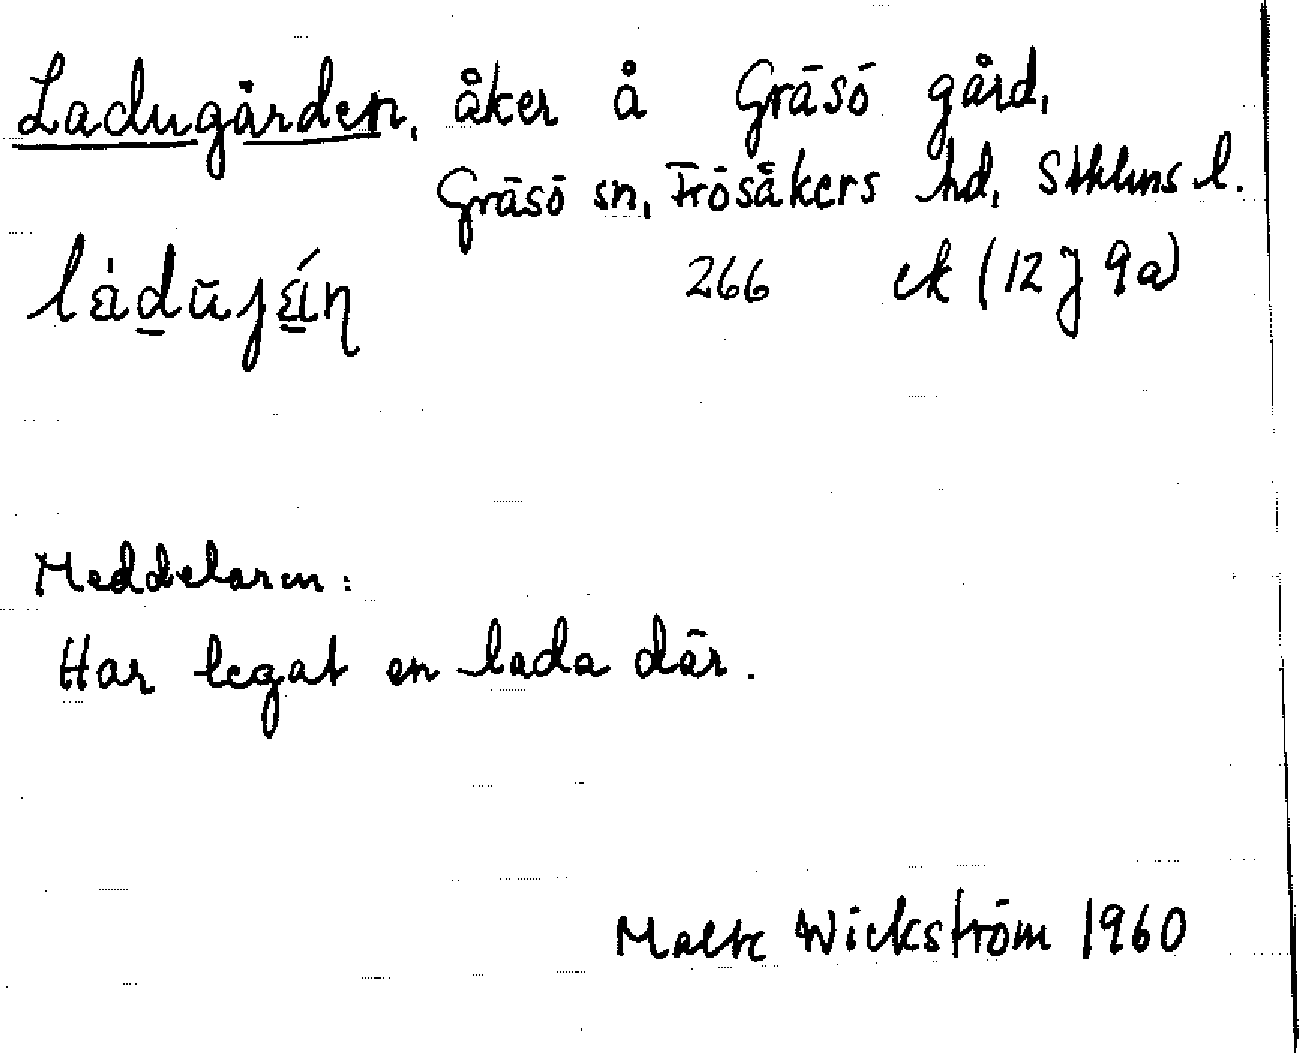 Ladugården, åker å Gräsö gård,
Gräsö sn, Frösåkers hd, Sthlms l.
266 ek (12 J 9a)
Meddelaren:
Har legat en lada där.
Malte Wickström 1960